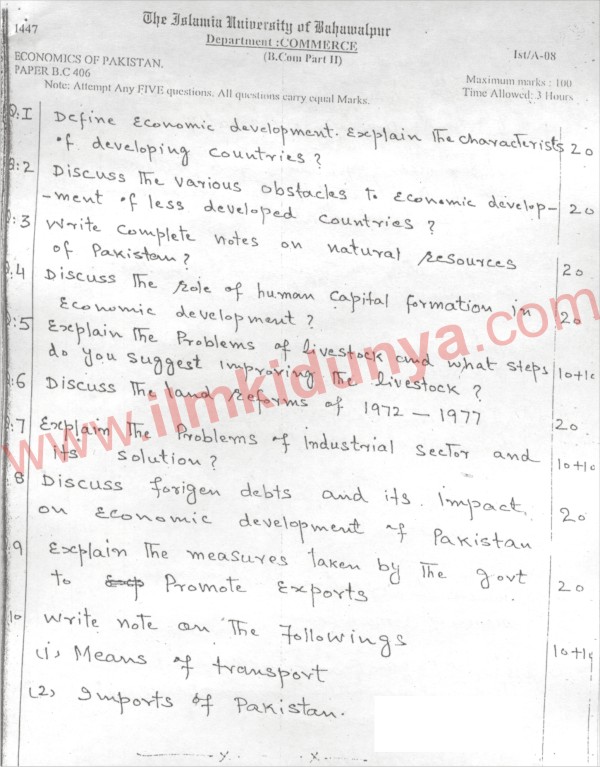 The Islamia University of Bahawalpur
1447
Department :COMMERCE
(B.Com Part II)
1st/A-08
ECONOMICS OF PAKISTAN.
PAPER B.C 406
Maximum marks : 100
Time Allowed: 3 Hours
Note: Attempt Any FIVE questions. All questions carry equal Marks.
Q:I Define Economic development. Explain The characterists
of developing countries ? 20
Q:2 Discuss The various obstacles to Economic develop-
-ment of less developed countries ? 20
Q:3 Write complete notes on natural resources
of Pakistan? 20
Q.4 Discuss The role of human capital formation in
Economic development ? 20
Q:5 Explain The Problems of livestock and what steps
do you suggest improving The livestock ? 10+10
Q:6 Discuss The land reforms of 1972 – 1977 20
Q.7 Explain The Problems of Industrial Sector and
its solution ? 10+10
8 Discuss forigen debts and its Impact
on Economic development of Pakistan 20
Q.9 Explain The measures taken by The govt
to Exp Promote Exports 20
10 Write note on The Followings 10+10
(1) Means of transport
(2) Imports of Pakistan.
www.ilmkidunya.com